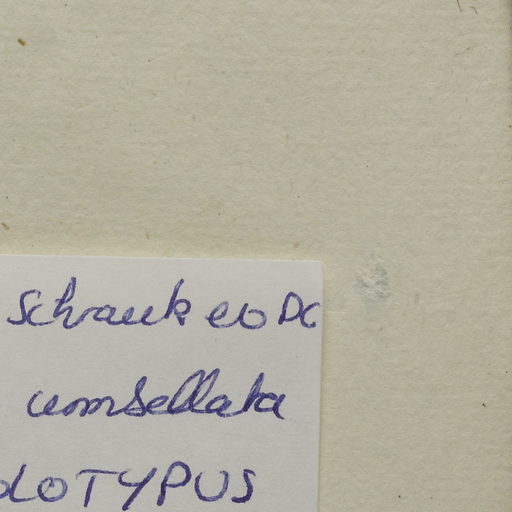 Schrank ex DC
umbellata
OLOTYPUS